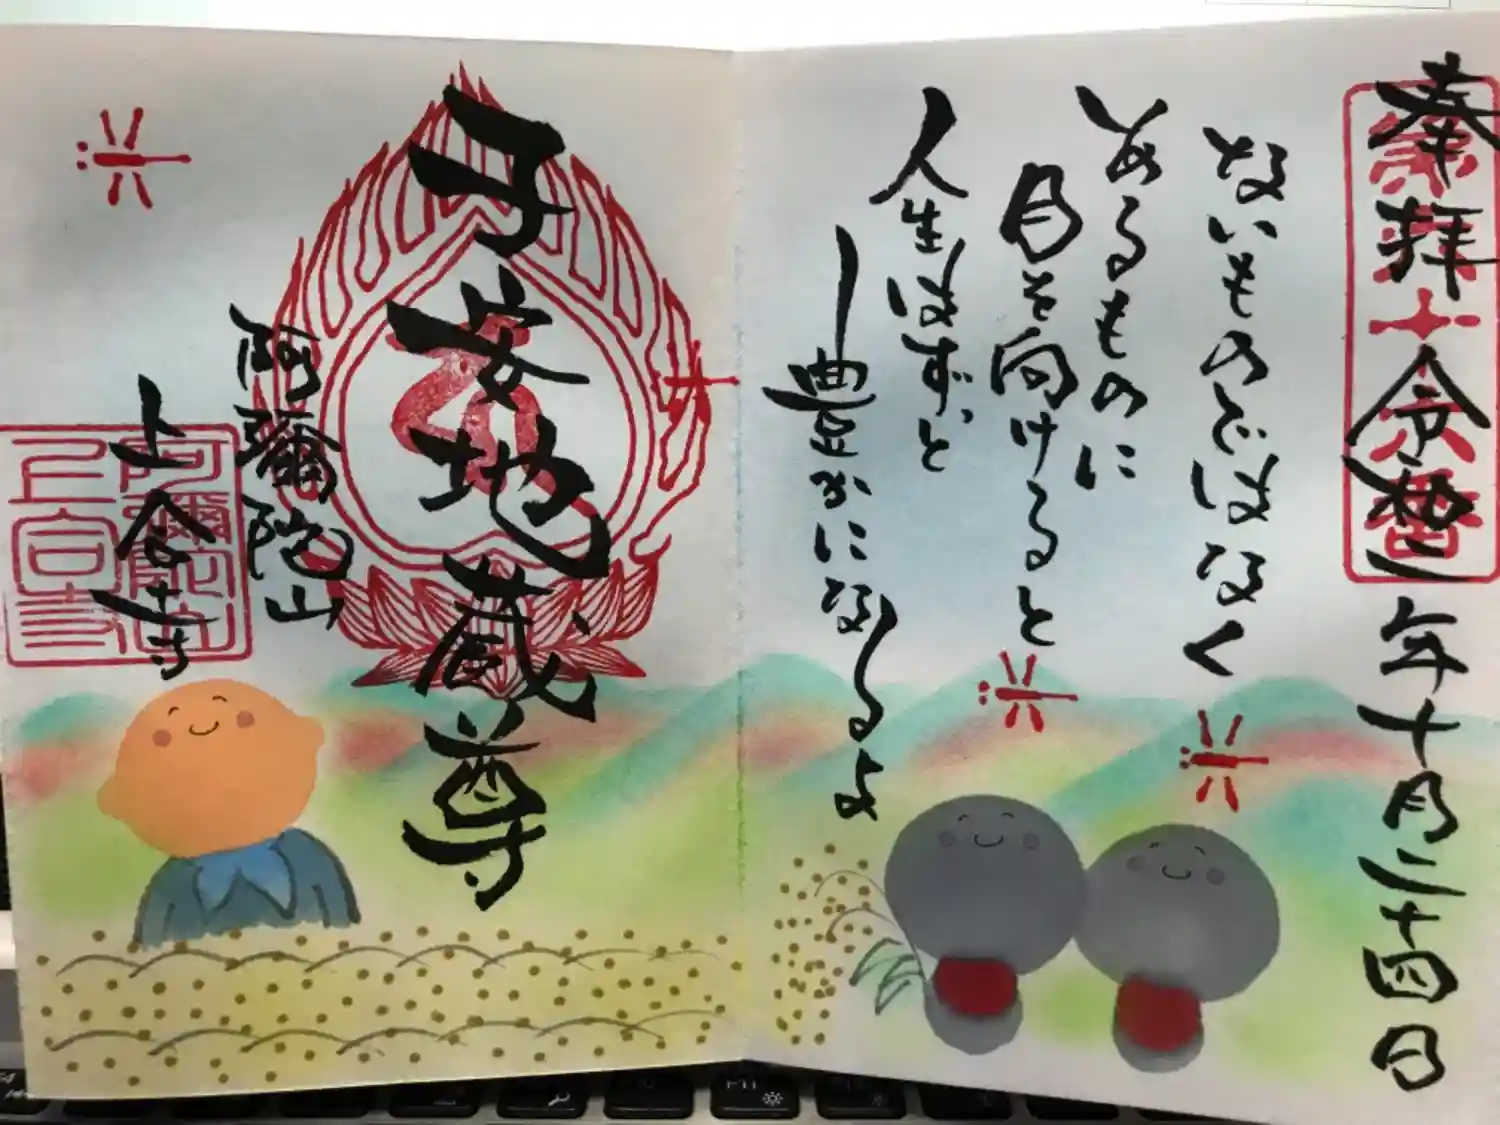 奉拝
令和二年十月二十四日
ないものではなく
あるものに
目を向けると
人生はずっと
豊かになるよ
子安地蔵尊
阿彌陀山
上合寺